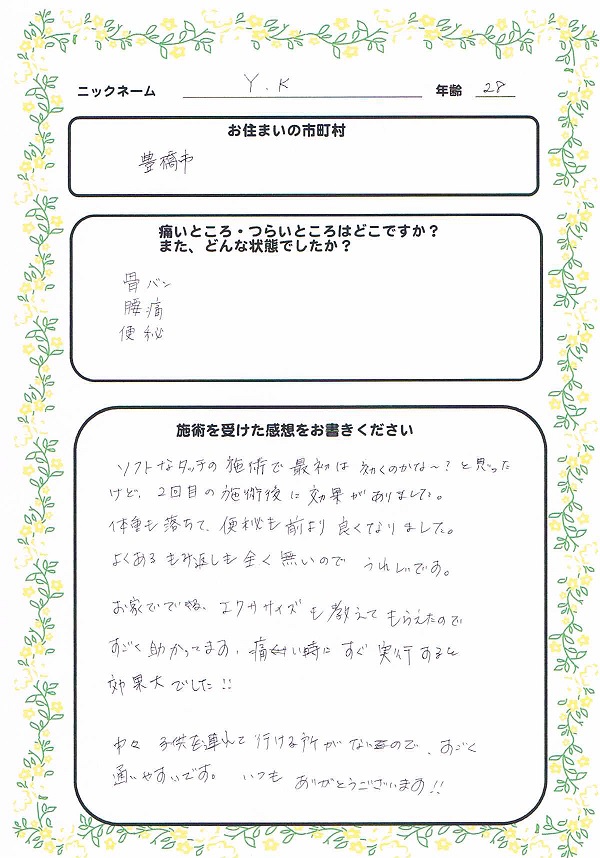 ニックネーム Y.K 年齢 28
お住まいの市町村
豊橋市
痛いところ・つらいところはどこですか？
また、どんな状態でしたか？
骨バン
腰痛
便秘
施術を受けた感想をお書きください
ソフトなタッチの施術で最初は効くのかな〜？と思った
けど、2回目の施術後に効果がありました。
体重も落ちて、便秘も前より良くなりました。
よくあるもみ返しも全く無いのでうれしいです。
お家でできる、エクササイズも教えてもらえたので
すごく助かってます、痛い時にすぐ実行すると
効果大でした!!
中々子供を連れて行ける所がないので、すごく
通いやすいです。いつもありがとうございます!!